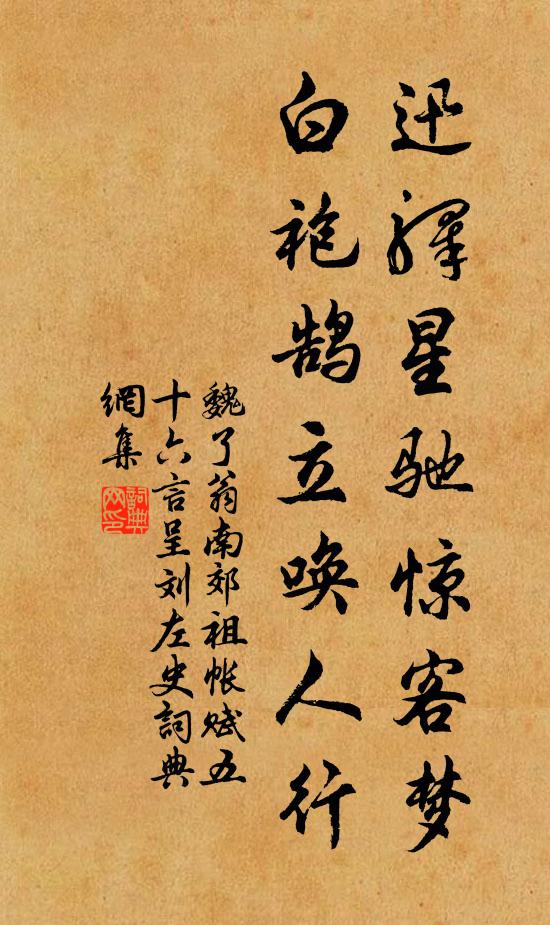 迅驿星驰惊客梦
白袍鹄立唤人行
魏了翁南郊祖帐赋五
十六言呈刘左史詞典
網集
詞典
网印